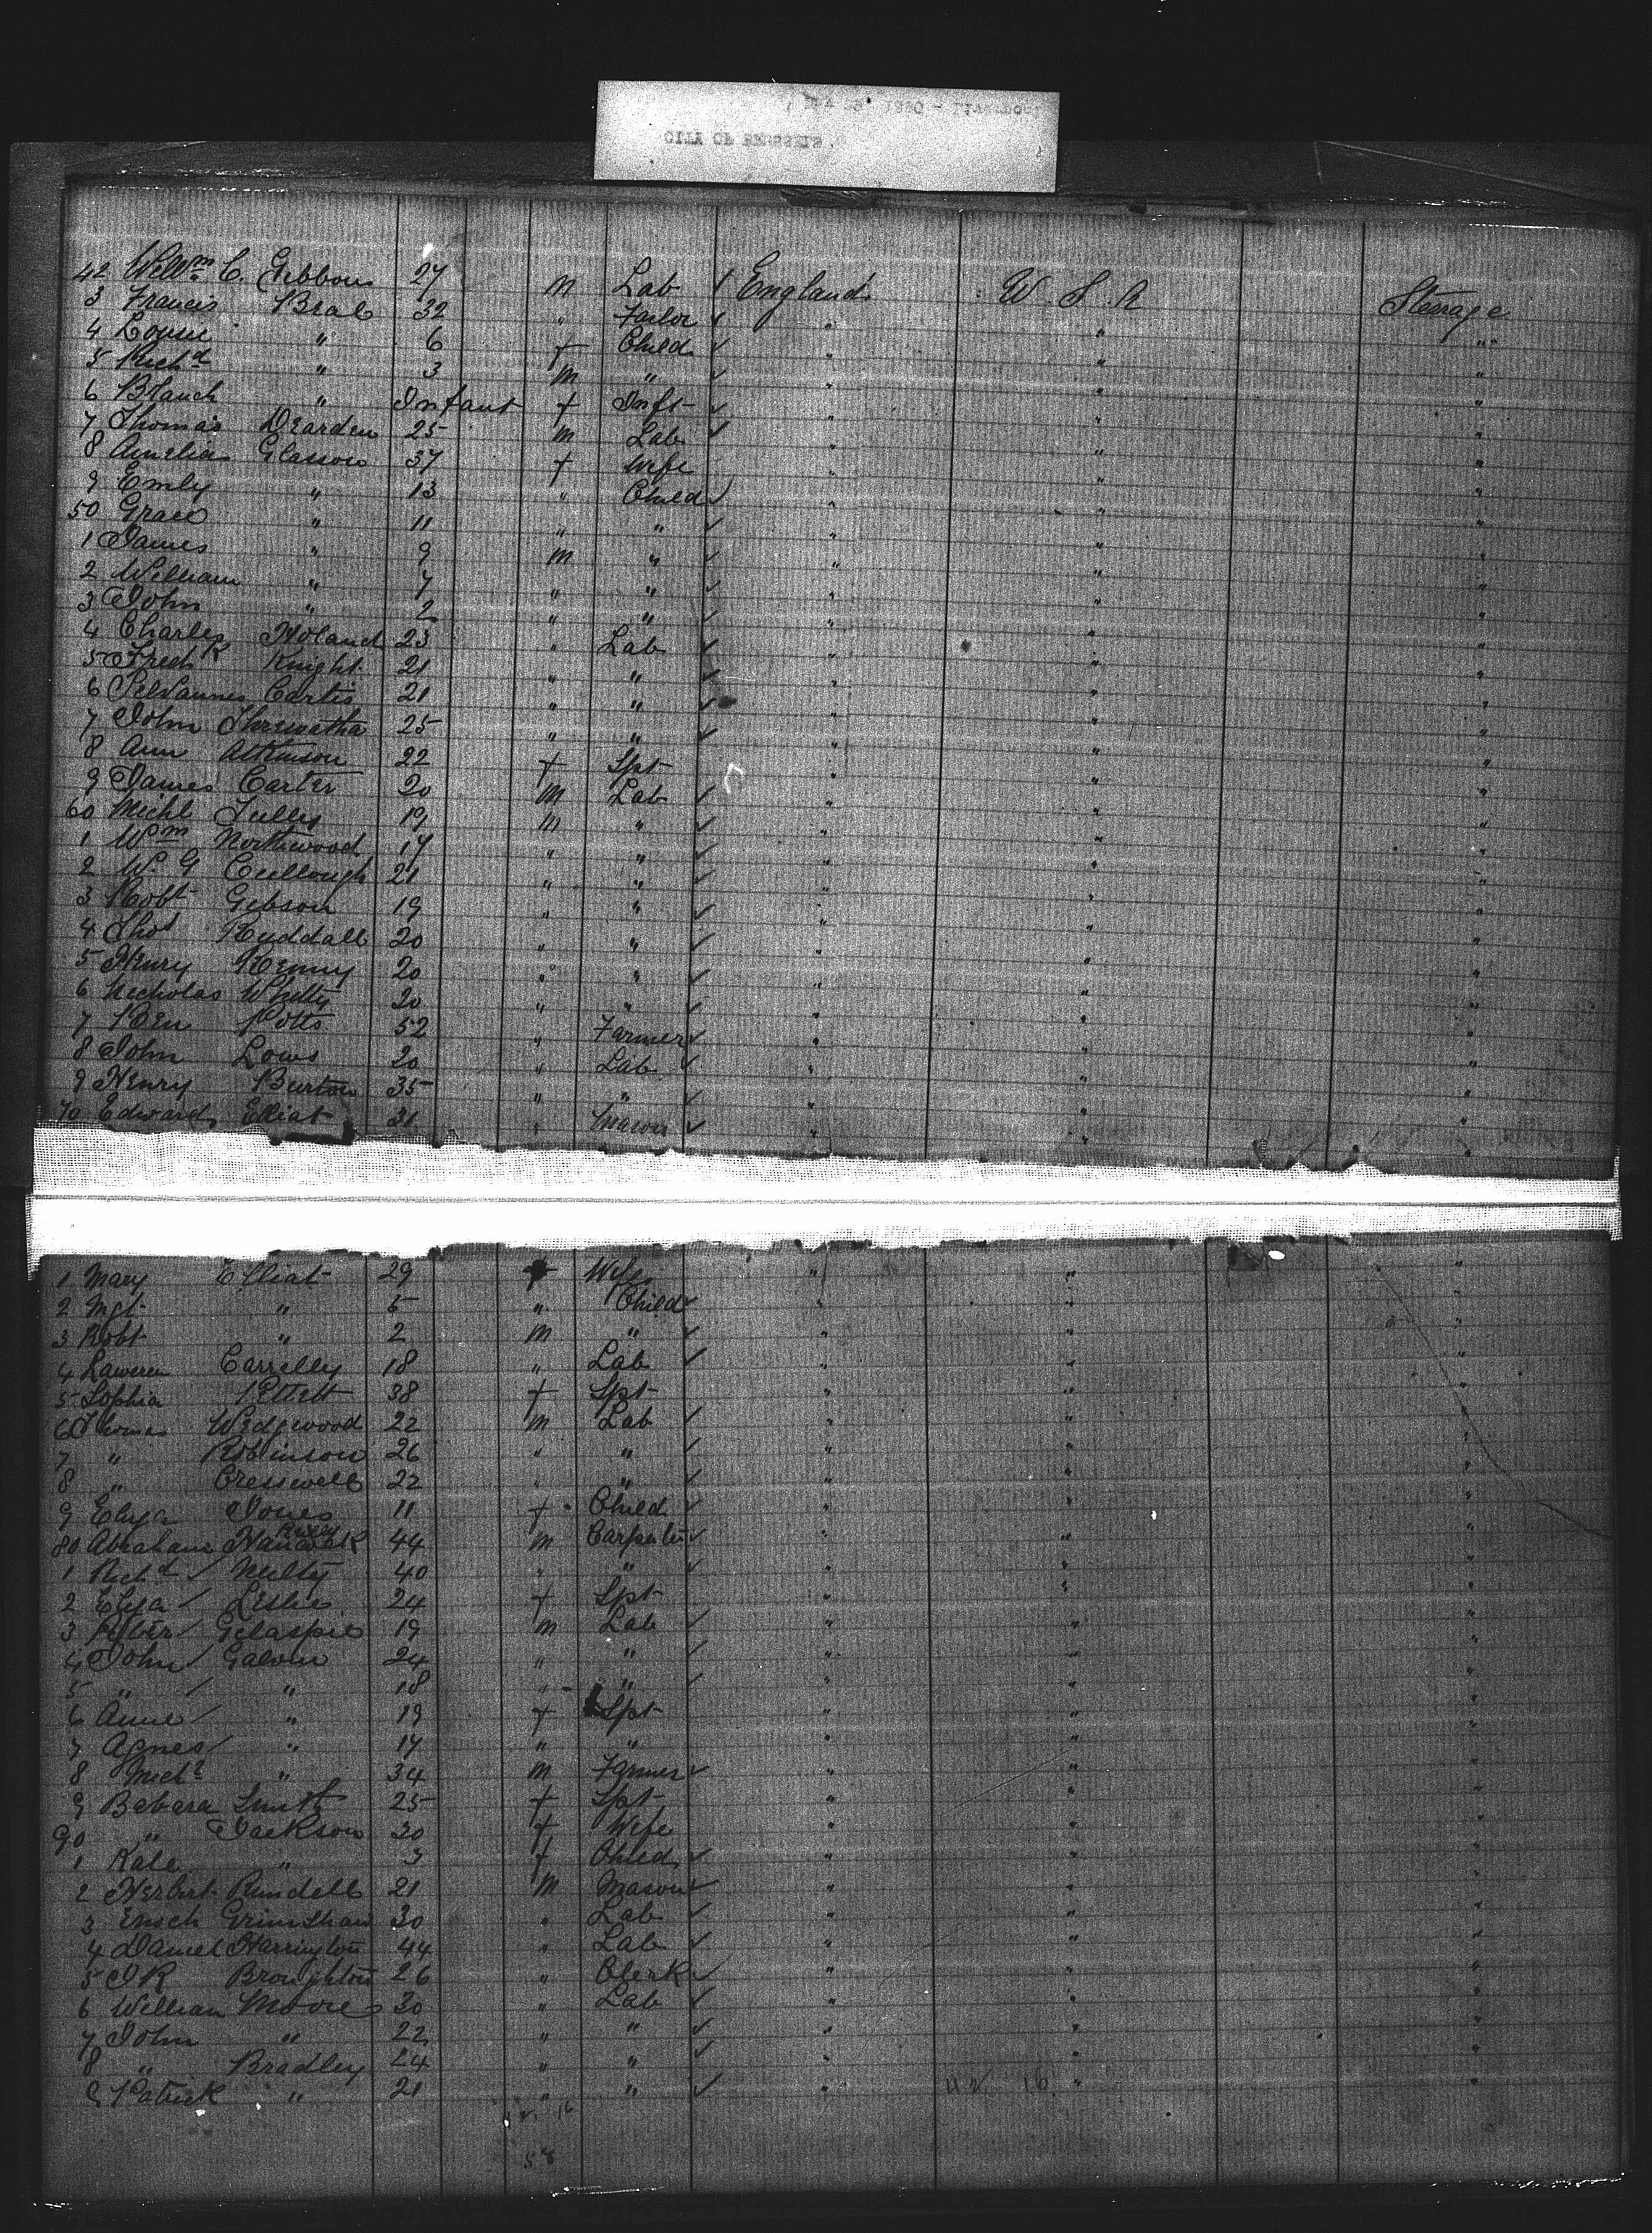 42 Willm C. Gibbons 27 m Lab England W. S. A Steerage
3 Francis Bral 32 " Tailor ✓ " " "
4 Louise " 6 f Child ✓ " " "
5 Richd " 3 m " ✓ " " "
6 Blanch " Infant f Inft ✓ " " "
7 Thomas Dearden 25 m Lab ✓ " " "
8 Amelia Glasson 37 f Wife " " "
9 Emly " 13 " Child ✓ " " "
50 Grace " 11 " " ✓ " " "
1 James " 9 m " ✓ " " "
2 William " 7 " " ✓ " " "
3 John " 2 " " ✓ " " "
4 Charles Holand 23 " Lab ✓ " " "
5 Fredk Knight 21 " " ✓ " " "
6 Curtis 21 " " ✓ " " "
7 John 25 " " ✓ " " "
8 Ann Atkinson 22 f Spt " " "
9 James Carter 20 m Lab ✓ " " "
60 Michl Tully 19 m " ✓ " " "
1 Wm Northwood 17 " " ✓ " " "
2 W. G Cullough 21 " " ✓ " " "
3 Robt Gibson 19 " " ✓ " " "
4 Thos Ruddall 20 " " ✓ " " "
5 Henry Kenny 20 " " ✓ " " "
6 Nicholas Whitty 20 " " ✓ " " "
7 Ben Potts 52 " Farmer ✓ " " "
8 John Lows 20 " Lab ✓ " " "
9 Henry Burton 35 " " ✓ " " "
70 Edward Elliat 31 " Mason ✓ " " "
1 Mary Elliat 29 f Wife " " "
2 Mgt " 5 " Child ✓ " " "
3 Robt " 2 m " ✓ " " "
4 Laweren Carrelly 18 " Lab ✓ " " "
5 Sophia Pettett 38 f Spt " " "
6 Thomas Wedgewood 22 m Lab ✓ " " "
7 " Robinson 26 " " ✓ " " "
8 " Cresswell 22 " " ✓ " " "
9 Eliza Jones 11 f Child ✓ " " "
80 Abraham 44 m Carpenter ✓ " " "
1 Richd Nulty 40 " " ✓ " " "
2 Eliza Leslie 24 f Spt " " "
3 Peter Gilaspie 19 m Lab ✓ " " "
4 John Galvin 24 " " ✓ " " "
5 " " 18 " " ✓ " " "
6 Anne " 19 f Spt " " "
7 Agnes " 17 " " " " "
8 Michl " 34 m Farmer ✓ " " "
9 Babara Smith 25 f Spt " " "
90 " Jackson 30 f Wife " " "
1 Kate " 3 f Child ✓ " " "
2 Herbert Rundell 21 m Mason ✓ " " "
3 Enoch Grimshaw 30 " Lab ✓ " " "
4 Daniel Harrington 44 " Lab ✓ " " "
5 J R Broughton 26 " Clerk ✓ " " "
6 William Moore 30 " Lab ✓ " " "
7 John " 22 " " ✓ " " "
8 " Bradley 24 " " ✓ " " "
9 Patrick " 21 " " ✓ " " "
58